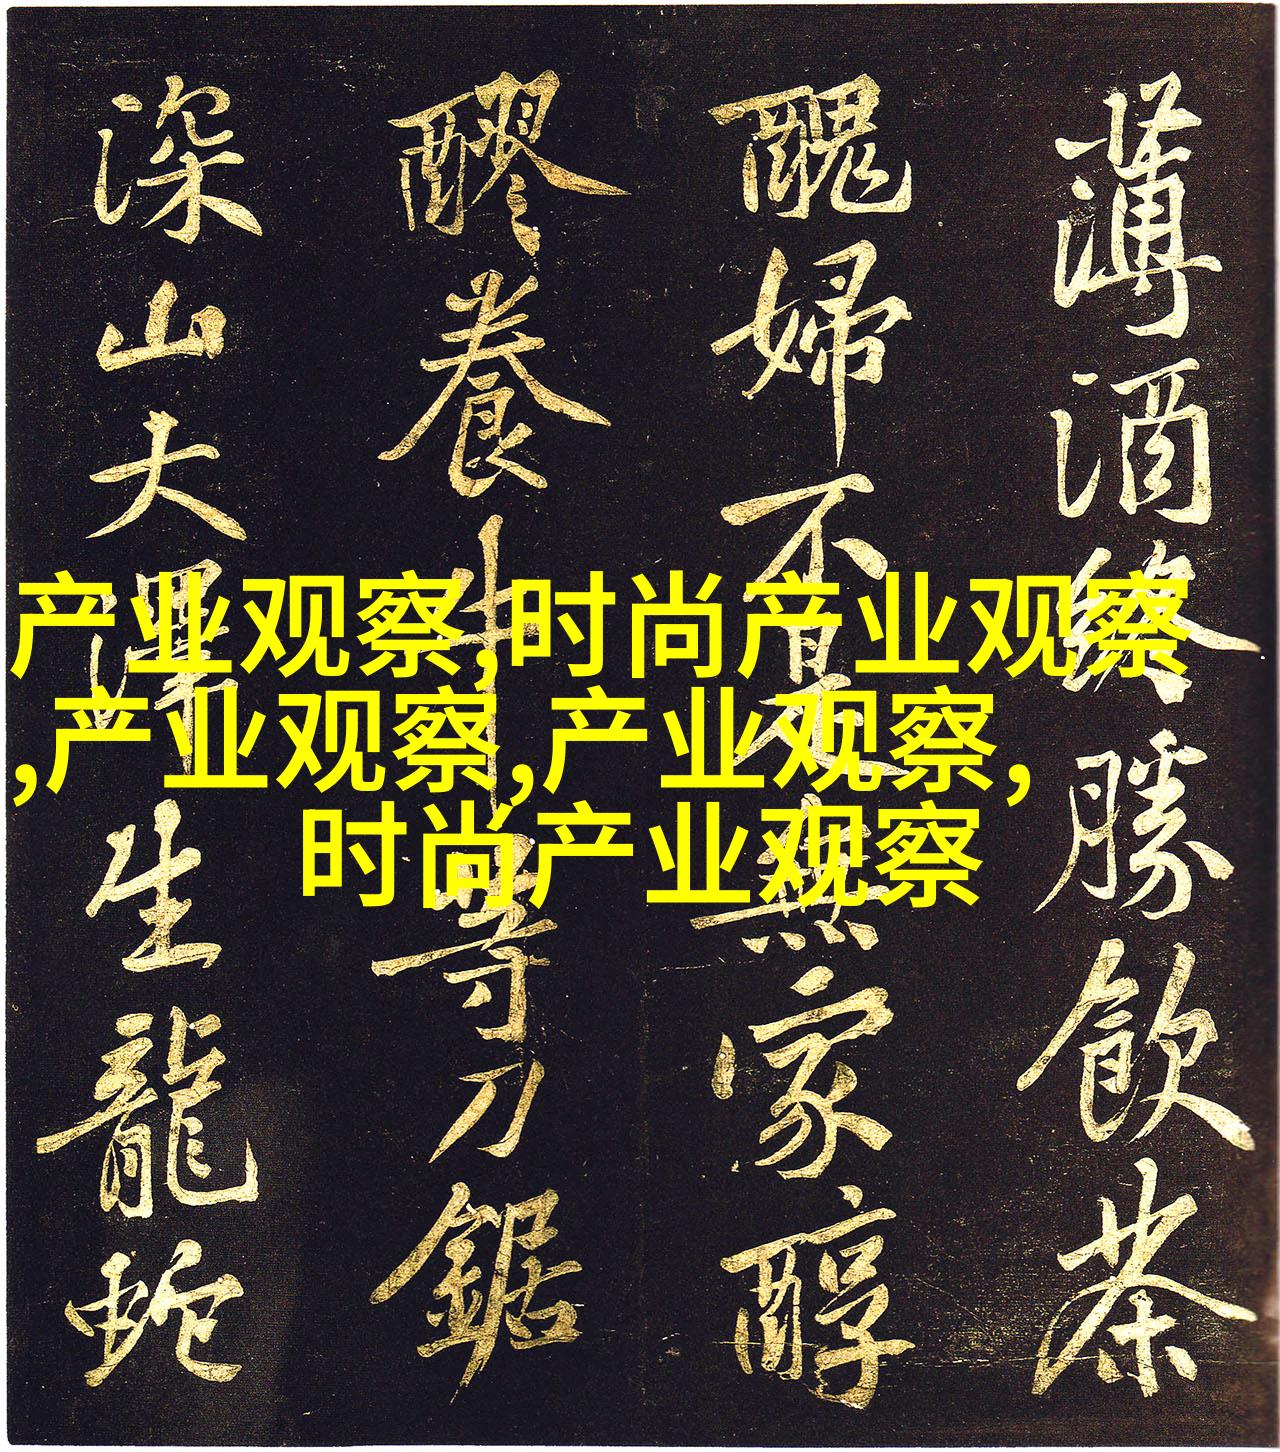 薄酒終勝飲茶
醜婦不是無家醇
醪養牛等刀鋸
深山大澤生龍蛇
产业观察,时尚产业观察
,产业观察,产业观察,
时尚产业观察